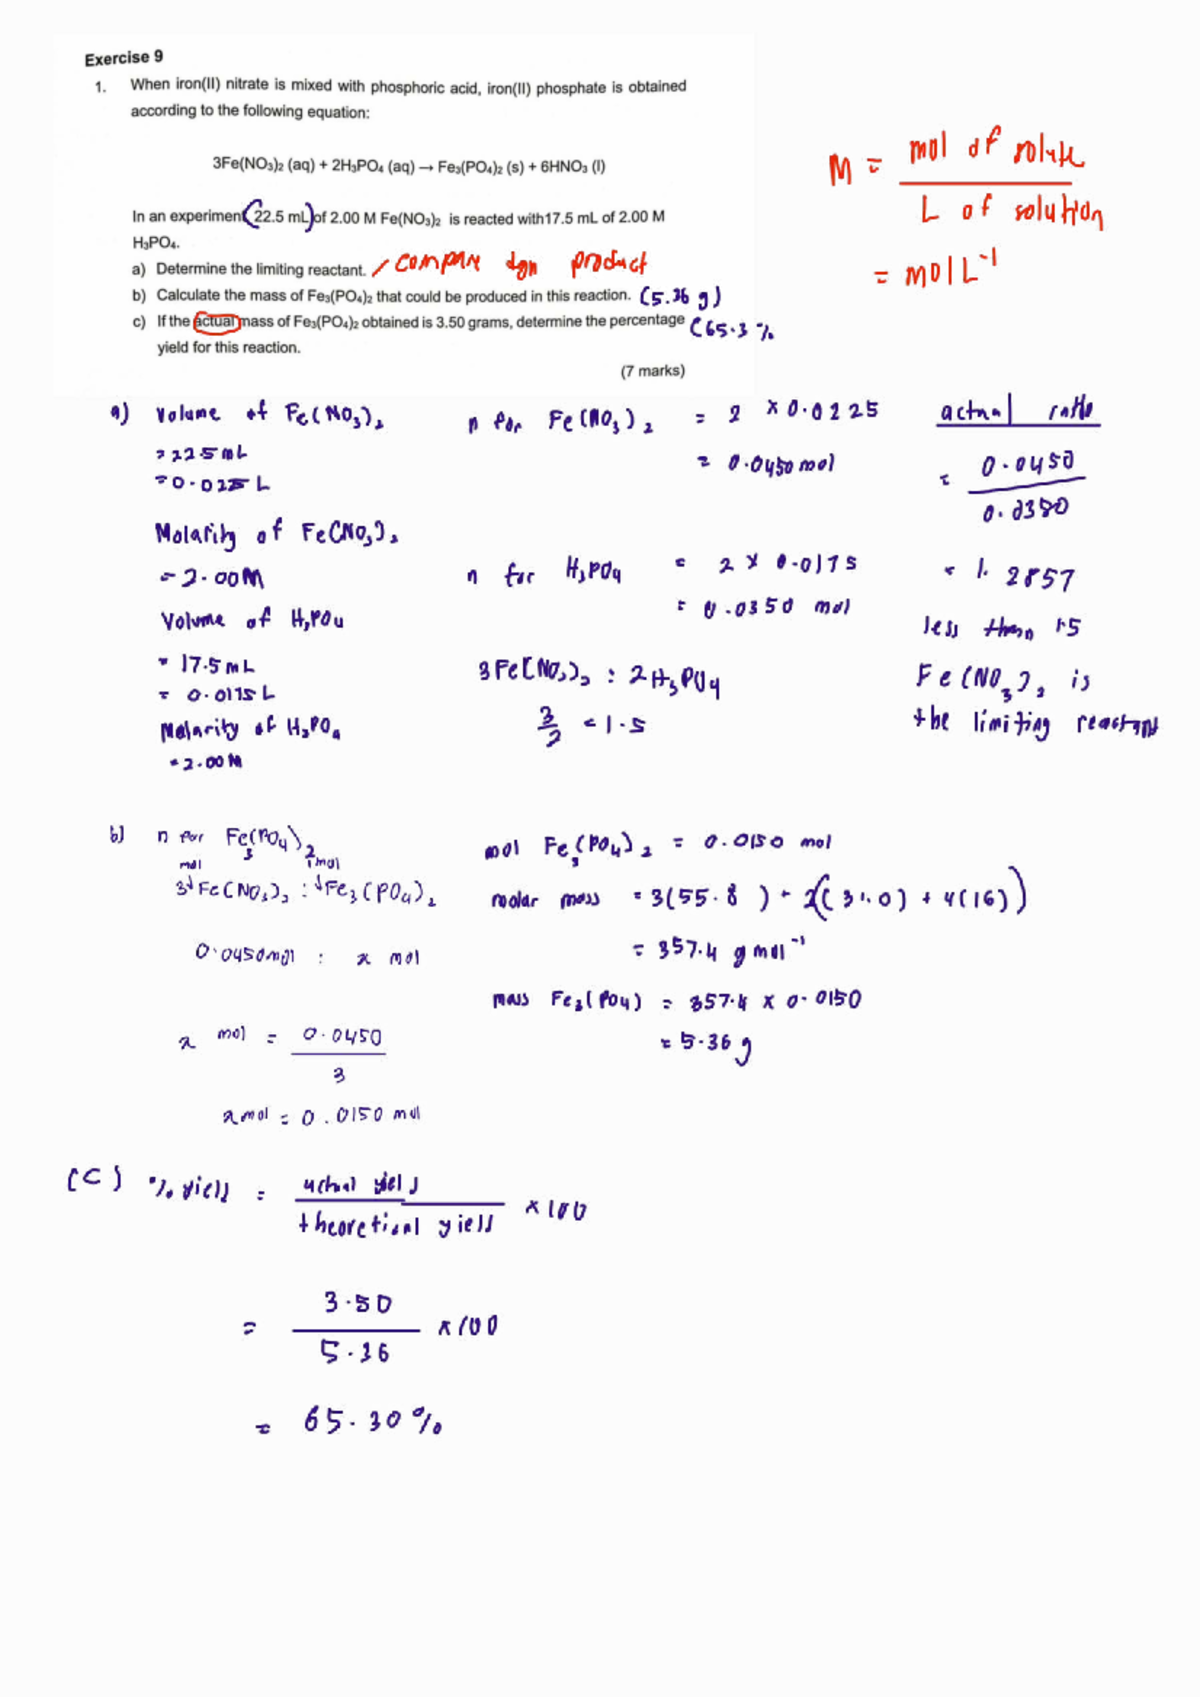 Exercise 9
1. When iron(II) nitrate is mixed with phosphoric acid, iron(II) phosphate is obtained
according to the following equation:
3Fe(NO₃)₂ (aq) + 2H₃PO₄ (aq) → Fe₃(PO₄)₂ (s) + 6HNO₃ (l)
M = mol of solute / L of solution
= mol L⁻¹
In an experiment 22.5 mL of 2.00 M Fe(NO₃)₂ is reacted with17.5 mL of 2.00 M
H₃PO₄.
a) Determine the limiting reactant. / compare dgn product
b) Calculate the mass of Fe₃(PO₄)₂ that could be produced in this reaction. (5.36 g)
c) If the actual mass of Fe₃(PO₄)₂ obtained is 3.50 grams, determine the percentage (65.3 %
yield for this reaction.
(7 marks)
a) Volume of Fe(NO₃)₂
= 22.5 mL
= 0.0225 L
Molarity of Fe(NO₃)₂
= 2.00M
Volume of H₃PO₄
= 17.5 mL
= 0.0175 L
Molarity of H₃PO₄
= 2.00 M
n for Fe(NO₃)₂ = 2 × 0.0225
= 0.0450 mol
n for H₃PO₄ = 2 × 0.0175
= 0.0350 mol
3Fe(NO₃)₂ : 2H₃PO₄
3/2 = 1.5
actual ratio
= 0.0450 / 0.0350
= 1.2857
less than 1.5
Fe(NO₃)₂ is
the limiting reactant
b) n for Fe₃(PO₄)₂
mol 1mol
3Fe(NO₃)₂ : 1Fe₃(PO₄)₂
0.0450mol : x mol
x mol = 0.0450 / 3
x mol = 0.0150 mol
mol Fe₃(PO₄)₂ = 0.0150 mol
molar mass = 3(55.8) + 2((31.0) + 4(16))
= 357.4 g mol⁻¹
mass Fe₃(PO₄) = 357.4 × 0.0150
= 5.36 g
(C) % yield = actual yield / theoretical yield × 100
= 3.50 / 5.36 × 100
= 65.30 %